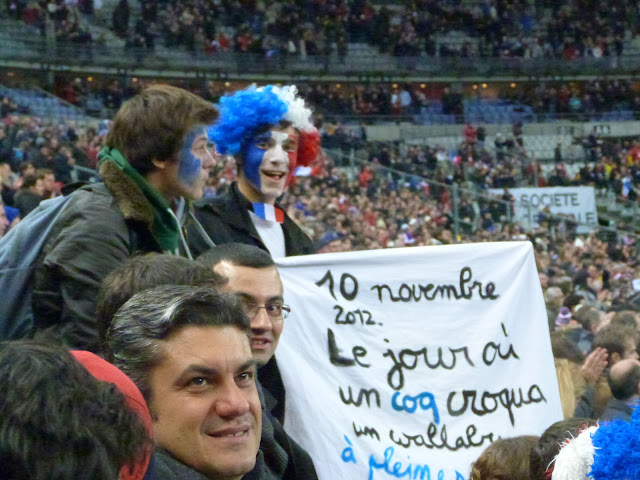 SOCIETE
10 novembre
2012.
Le jour où
un coq croqua
un wallaby
à pleines